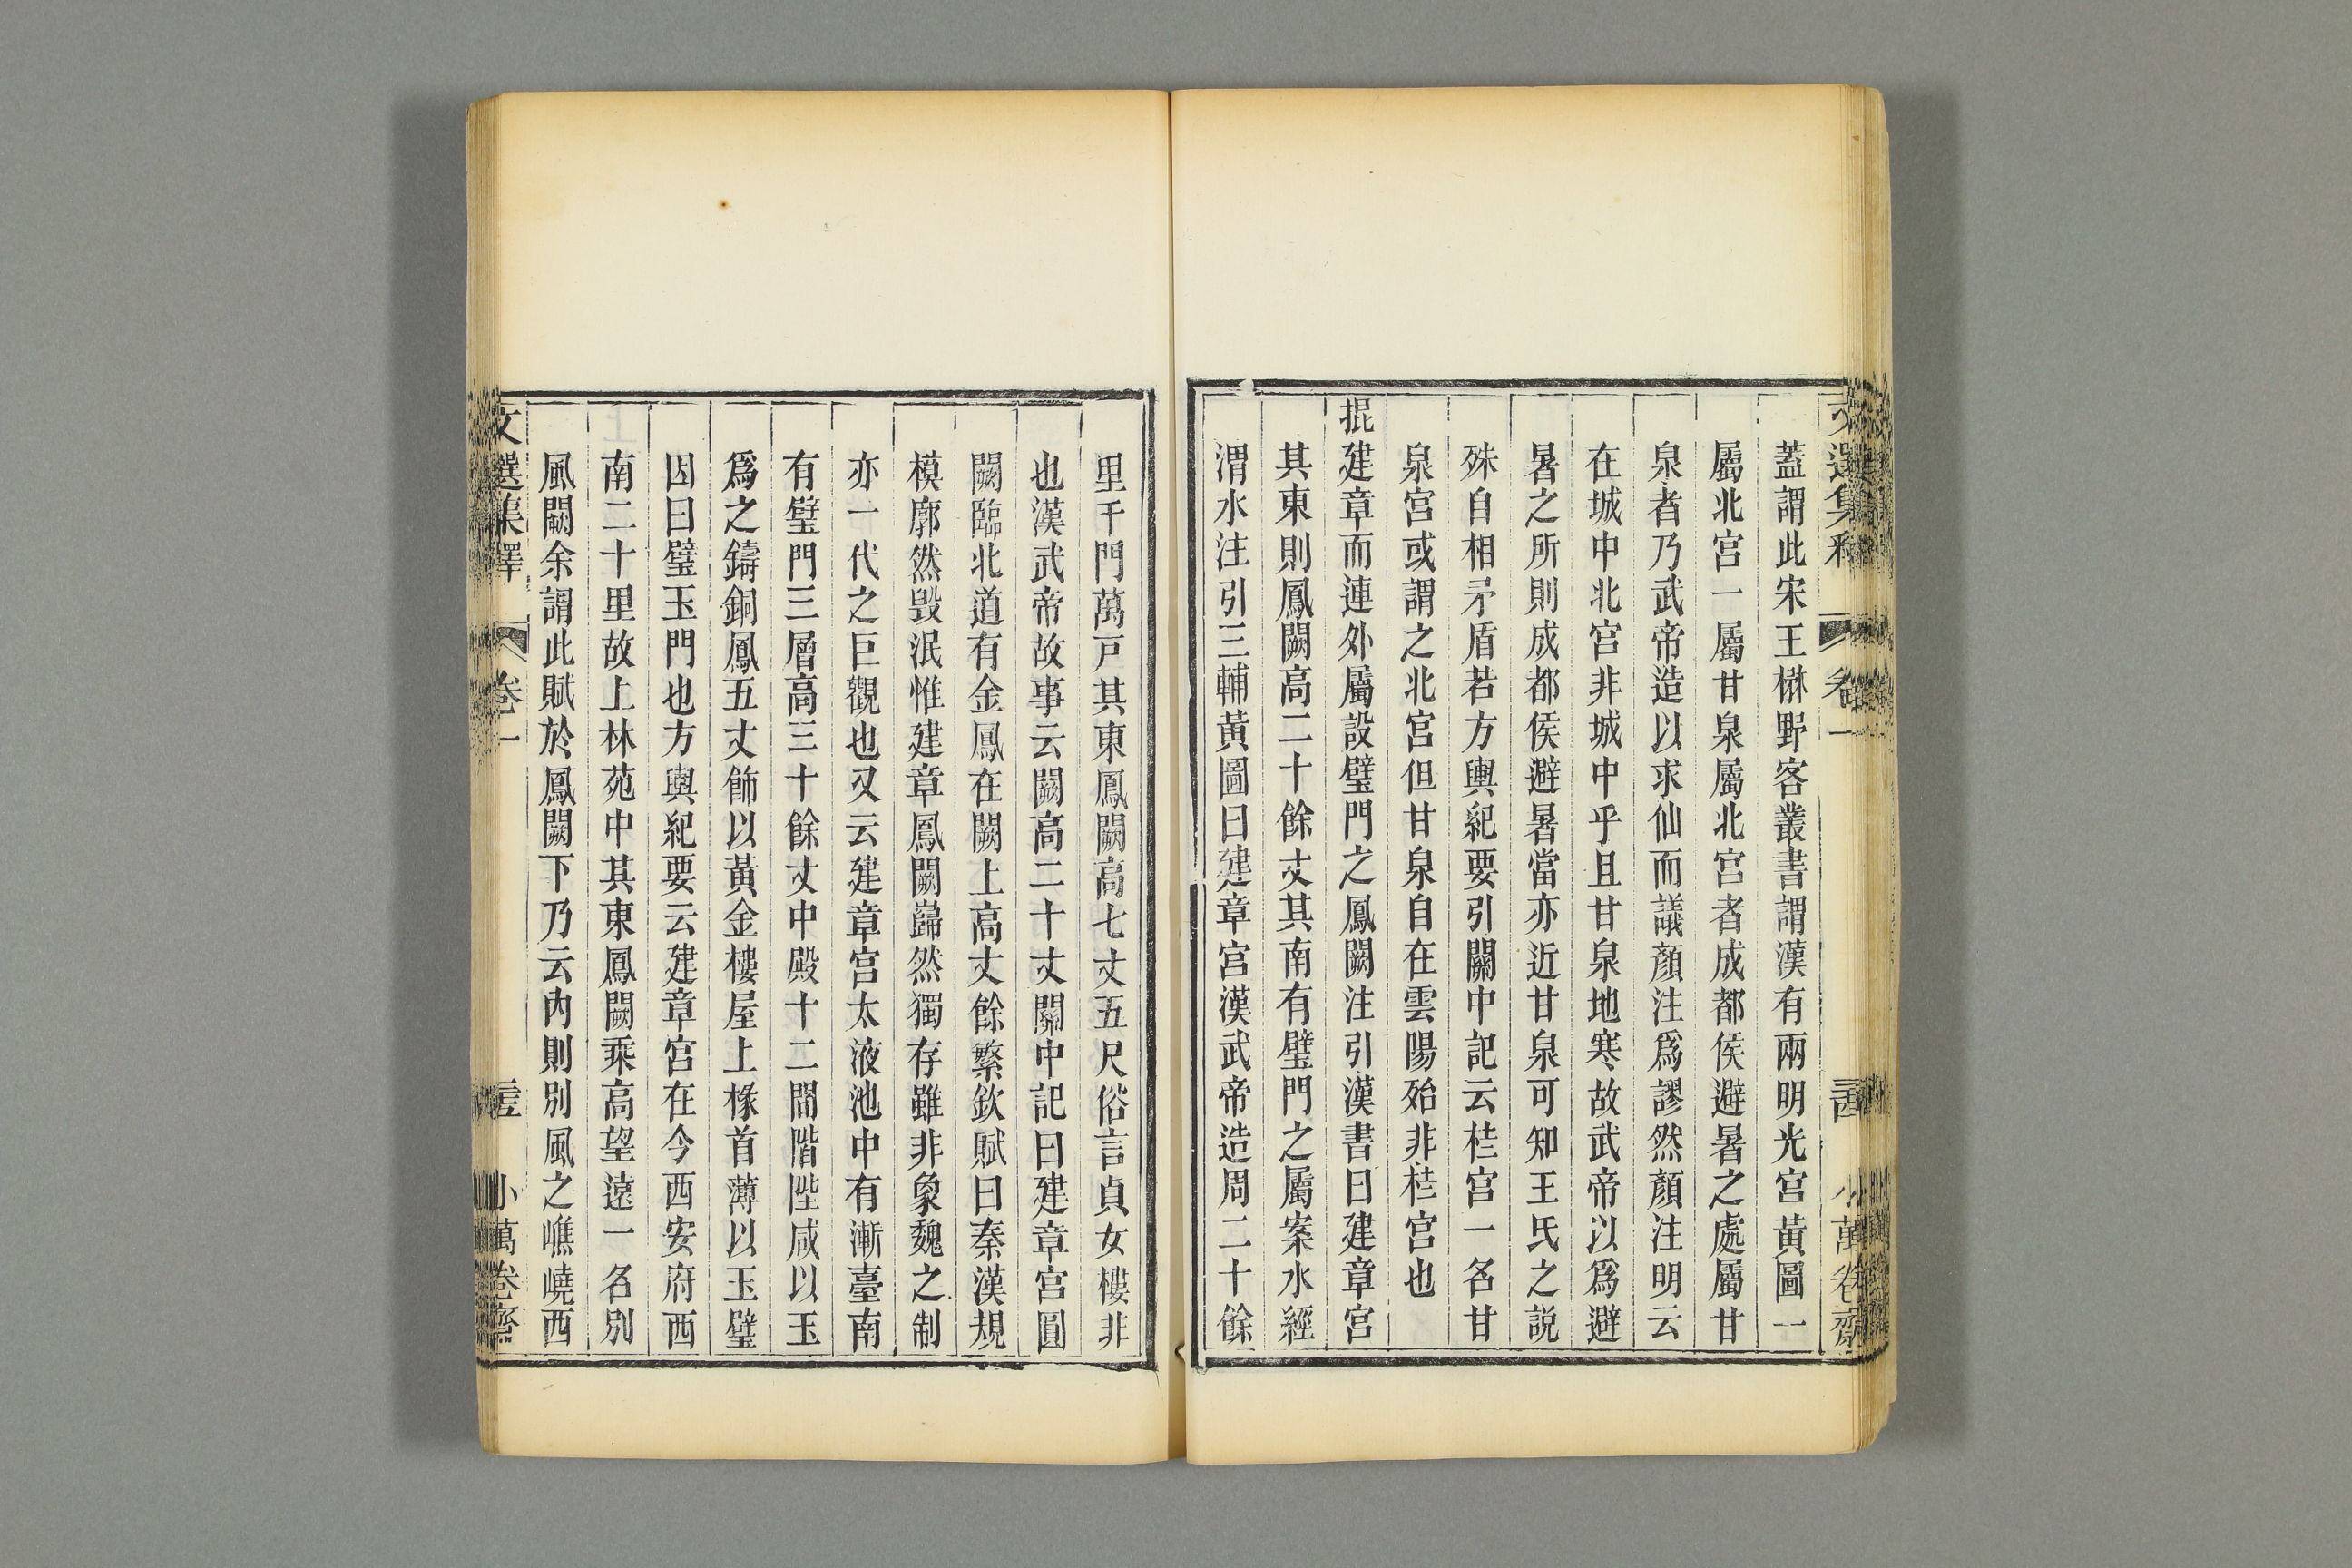 文選集釋 卷一 二十四 小萬卷齋
蓋謂此宋王楙野客叢書謂漢有兩明光宮黃圖一
屬北宮一屬甘泉屬北宮者成都侯避暑之處屬甘
泉者乃武帝造以求仙而議顏注爲謬然顏注明云
在城中北宮非城中乎且甘泉地寒故武帝以爲避
暑之所則成都侯避暑當亦近甘泉可知王氏之説
殊自相矛盾若方輿紀要引關中記云桂宮一名甘
泉宮或謂之北宮但甘泉自在雲陽殆非桂宮也
掍建章而連外屬設璧門之鳳闕注引漢書曰建章宮
其東則鳳闕高二十餘丈其南有璧門之屬案水經
渭水注引三輔黃圖曰建章宮漢武帝造周二十餘
里千門萬戸其東鳳闕高七丈五尺俗言貞女樓非
也漢武帝故事云闕高二十丈關中記曰建章宮圓
闕臨北道有金鳳在闕上高丈餘繁欽賦曰秦漢規
模廓然毁泯惟建章鳳闕巋然獨存雖非象魏之制
亦一代之巨觀也又云建章宮太液池中有漸臺南
有璧門三層高三十餘丈中殿十二閒階陛咸以玉
爲之鑄銅鳳五丈飾以黃金樓屋上椽首薄以玉璧
因曰璧玉門也方輿紀要云建章宮在今西安府西
南二十里故上林苑中其東鳳闕乘高望遠一名別
風闕余謂此賦於鳳闕下乃云內則別風之嶕嶢西
文選集釋 卷一 二十五 小萬卷齋